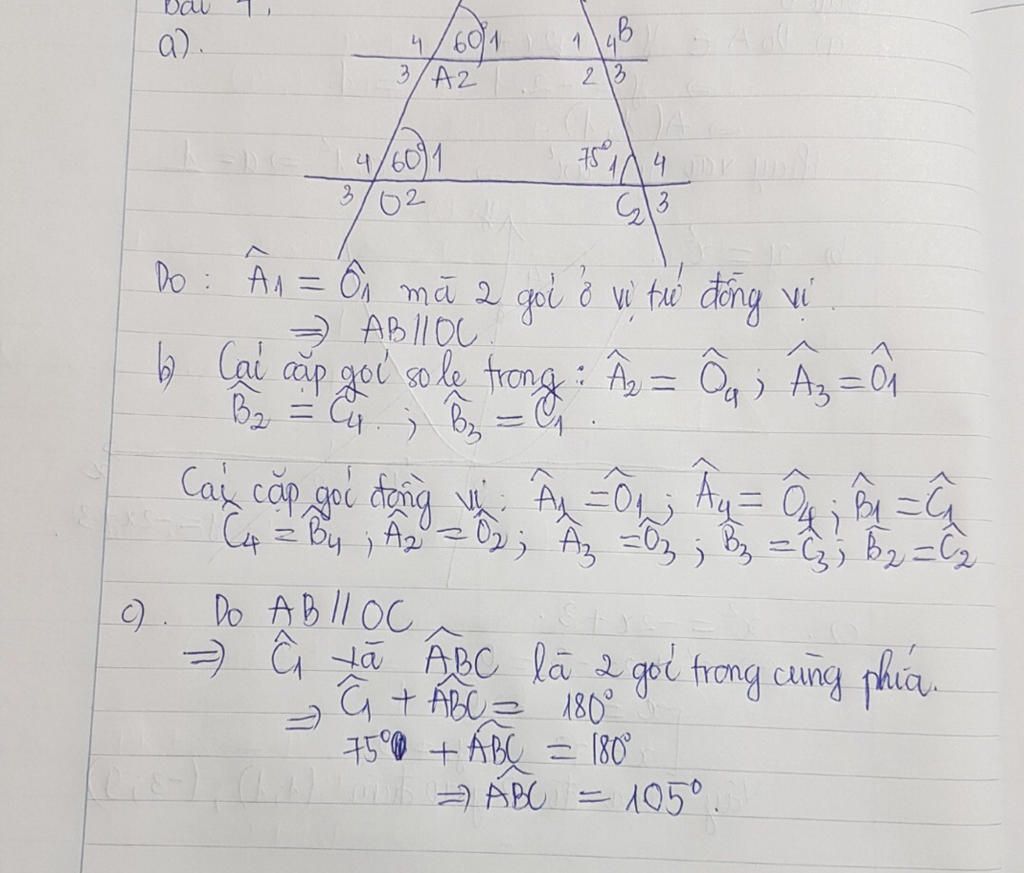 Bài 1,
a).
4 60° 1 1 4 B
3 A 2 2 3
4 60° 1 75° 1 4
3 O 2 C 2 3
Do : Â1 = Ô1 mà 2 góc ở vị trí đồng vị.
⇒ AB // OC.
b) Các cặp góc so le trong : Â2 = Ô4 ; Â3 = Ô1
B̂2 = Ĉ4. ; B̂3 = Ĉ1.
Các cặp góc đồng vị : Â1 = Ô1 ; Â4 = Ô4 ; B̂1 = Ĉ1
Ĉ4 = B̂4 ; Â2 = Ô2 ; Â3 = Ô3 ; B̂3 = Ĉ3 ; B̂2 = Ĉ2
c). Do AB // OC
⇒ Ĉ1 và ABC^ là 2 góc trong cùng phía.
⇒ Ĉ1 + ABC^ = 180°
75° + ABC^ = 180°
⇒ ABC^ = 105°.